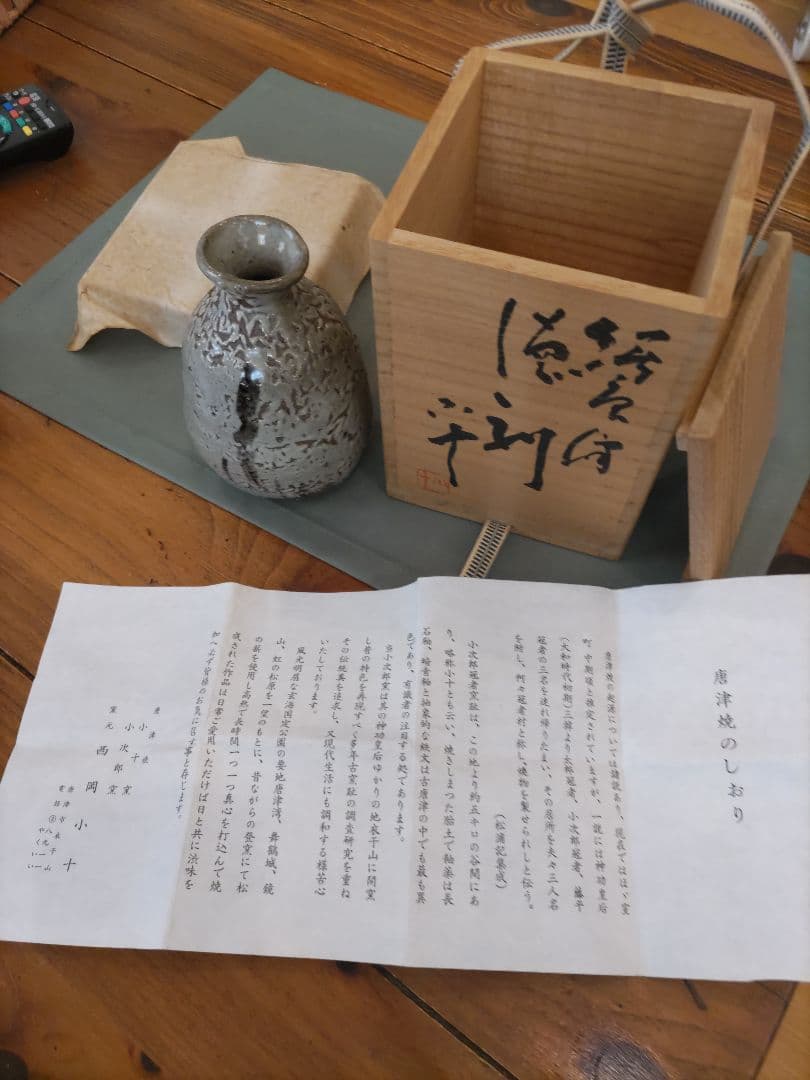 徳利
小十
唐津焼のしおり
唐津焼の起源については諸説あり、現在ではほゞ室
町中期頃と推定されていますが、一説には神功皇后
(大和時代初期)三韓より太郎冠者、小次郎冠者、藤平
冠者の三名を連れ帰りたまい、その居所を夫々三人名
を附し、何々冠者村と称し、焼物を製せられしと伝う。
(松浦記集成)
小次郎冠者窯趾は、この地より約五キロの谷間にあ
り、略称小十とも云い、焼きしまつた胎土で釉薬は長
石釉、暗青釉と抽象的な絵文は古唐津の中でも最も異
色であり、有識者の注目する処であります。
当小次郎窯は其の神功皇后ゆかりの地衣干山に開窯
し昔の特色を再現すべく多年古窯趾の調査研究を重ね
その伝統美を追求し、又現代生活にも調和する様苦心
いたしております。
風光明眉な玄海国定公園の要地唐津湾、舞鶴城、鏡
山、虹の松原を一望のもとに、昔ながらの登窯にて松
の薪を使用し高熱で長時間一つ一つ真心を打込んで焼
成された作品は日常ご愛用いただけば日と共に渋味を
加へ必ず皆様のお気に召す事と存じます。
唐津焼
小十
小次郎窯
窯元 西岡小十
唐津市衣干山